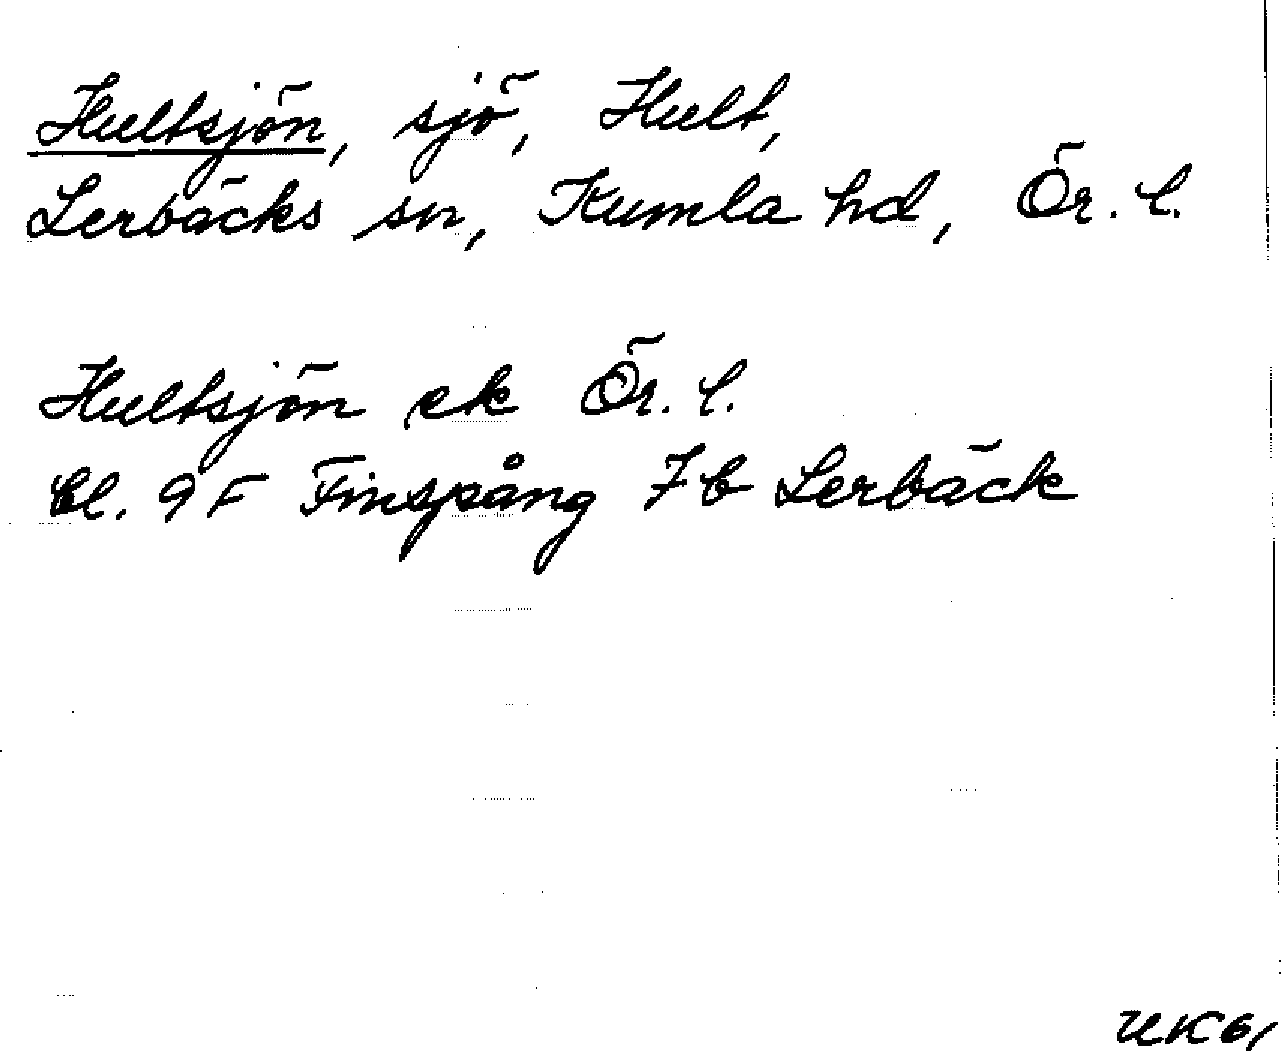 Hultsjön, sjö, Hult,
Lerbäcks sn, Kumla hd, Ör. l.
Hultsjön ek Ör. l.
bl. 9F Finspång 7b Lerbäck
UK61